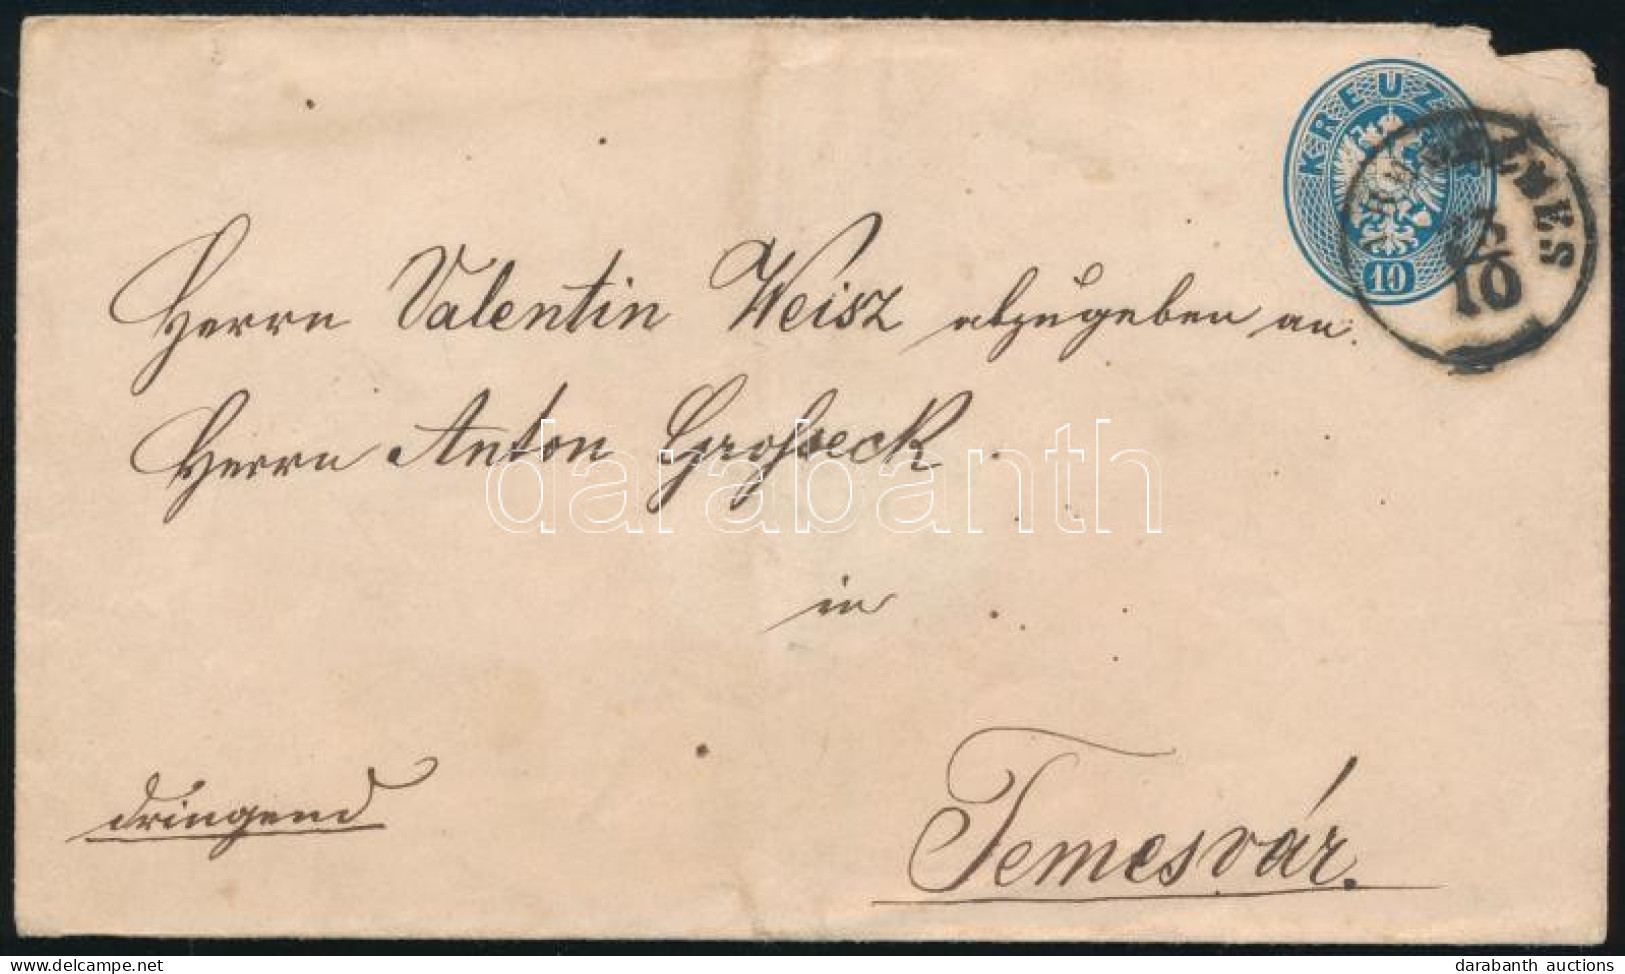 KREUZ
10
LMES
10
Herrn Valentin Weisz abzugeben an:
Herrn Anton Großeck.
in
dringend
Temesvár.
darabanth
darabanth auctions